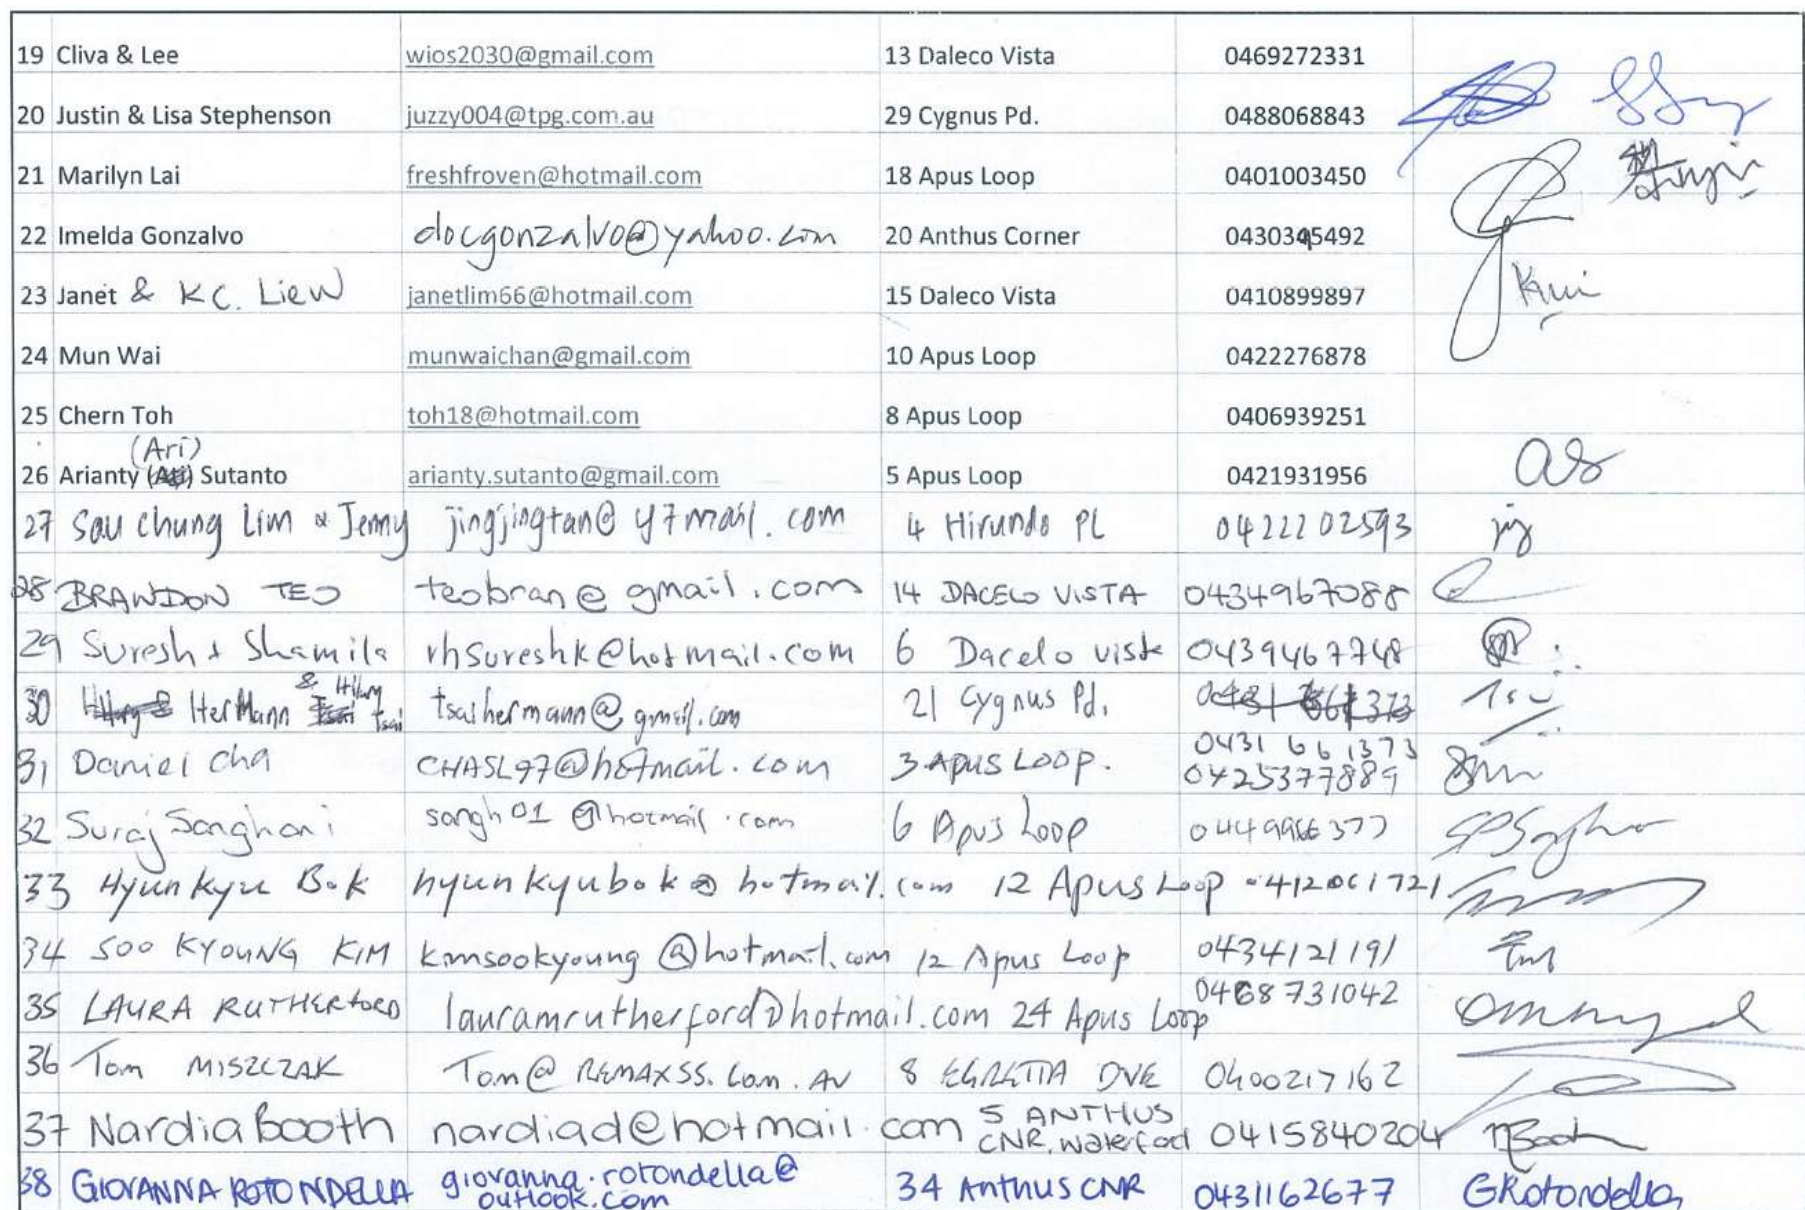 19 Cliva & Lee wios2030@gmail.com 13 Daleco Vista 0469272331
20 Justin & Lisa Stephenson juzzy004@tpg.com.au 29 Cygnus Pd. 0488068843
21 Marilyn Lai freshfroven@hotmail.com 18 Apus Loop 0401003450
22 Imelda Gonzalvo docgonzalvo@yahoo.com 20 Anthus Corner 0430345492
23 Janet & KC. Liew janetlim66@hotmail.com 15 Daleco Vista 0410899897
24 Mun Wai munwaichan@gmail.com 10 Apus Loop 0422276878
25 Chern Toh toh18@hotmail.com 8 Apus Loop 0406939251
(Ari)
26 Arianty Sutanto arianty.sutanto@gmail.com 5 Apus Loop 0421931956 as
27 Sau Chung Lim & Jenny jingjingtan@y7mail.com 4 Hirundo PL 0422202593
28 BRANDON TEO teobran@gmail.com 14 DACELO VISTA 0434967088
29 Suresh & Shamila rhsureshk@hotmail.com 6 Dacelo vista 0439467748
30 Hermann & Hilary Tsai tsaihermann@gmail.com 21 Cygnus Pd.
0431 661373
31 Daniel Cha CHASL97@hotmail.com 3 APUS LOOP. 0425377889
32 Suraj Sanghani sangh01@hotmail.com 6 Apus Loop 0449966377
33 Hyunkyu Bok hyunkyubok@hotmail.com 12 Apus Loop 0412061721
34 SOO KYOUNG KIM kimsookyoung@hotmail.com 12 Apus Loop 0434121191
35 LAURA RUTHERFORD lauramrutherford@hotmail.com 24 Apus Loop 0468731042
36 Tom MISZCZAK Tom@REMAXSS.Com.AU 8 EGRETTA DVE 0400217162
37 Nardia Booth nardiad@hotmail.com 5 ANTHUS CNR. Waterford 0415840204 NBooth
38 GIOVANNA ROTONDELLA giovanna.rotondella@outlook.com 34 Anthus CNR 0431162677 GRotondella